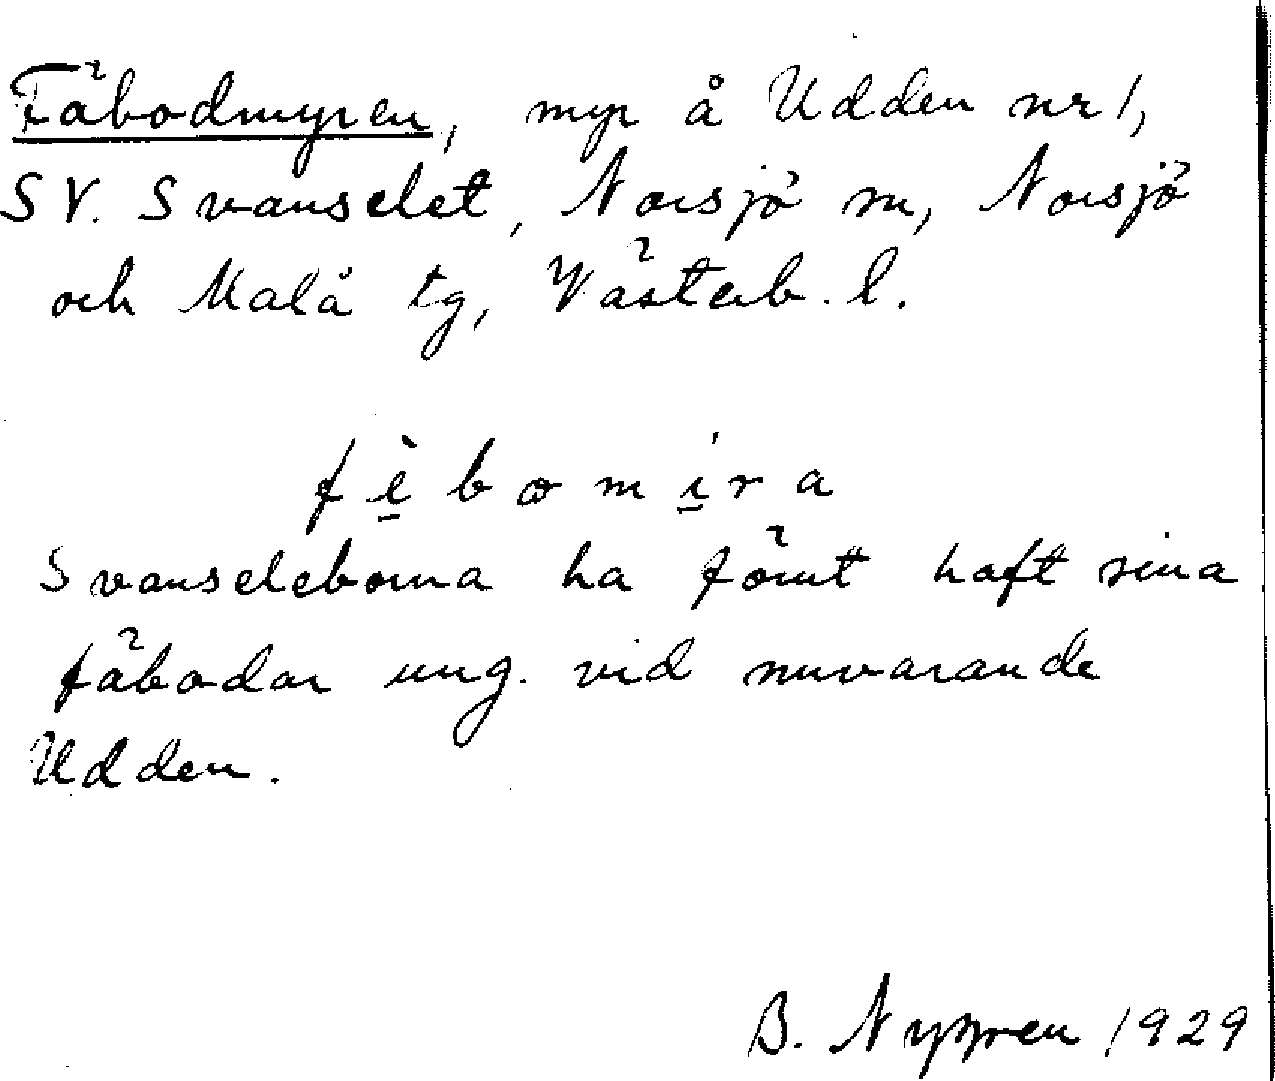 Fäbodmyren, myr å Udden nr 1,
SV. Svanselet, Norsjö sn, Norsjö
och Malå tg, Västerb. l.
fèbomíra
Svanseleborna ha förut haft sina
fäbodar ung. vid nuvarande
Udden.
B. Nygren 1929